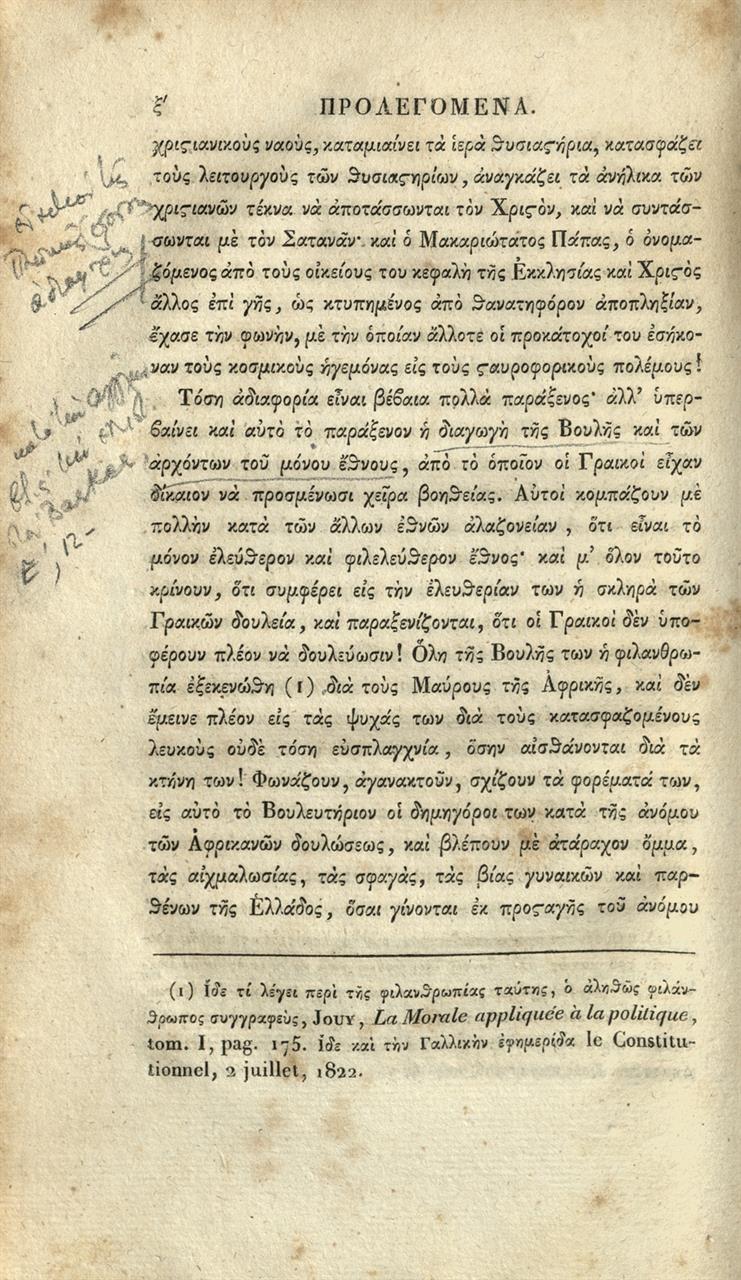 ξ′
ΠΡΟΛΕΓΟΜΕΝΑ.
χριϛιανικοὺς ναοὺς, καταμιαίνει τὰ ἱερὰ θυσιαϛήρια, κατασφάζει
τοὺς λειτουργοὺς τῶν θυσιαϛηρίων, ἀναγκάζει τὰ ἀνήλικα τῶν
χριϛιανῶν τέκνα νὰ ἀποτάσσωνται τὸν Χριϛὸν, καὶ νὰ συντάσ-
σωνται μὲ τὸν Σατανᾶν· καὶ ὁ Μακαριώτατος Πάπας, ὁ ὀνομα-
ζόμενος ἀπὸ τοὺς οἰκείους του κεφαλὴ τῆς Ἐκκλησίας καὶ Χριϛὸς
ἄλλος ἐπὶ γῆς, ὡς κτυπημένος ἀπὸ θανατηφόρον ἀποπληξίαν,
ἔχασε τὴν φωνὴν, μὲ τὴν ὁποίαν ἄλλοτε οἱ προκάτοχοί του ἐσήκο-
ναν τοὺς κοσμικοὺς ἡγεμόνας εἰς τοὺς ϛαυροφορικοὺς πολέμους!
Τόση ἀδιαφορία εἶναι βέβαια πολλὰ παράξενος· ἀλλ’ ὑπερ-
βαίνει καὶ αὐτὸ τὸ παράξενον ἡ διαγωγὴ τῆς Βουλῆς καὶ τῶν
ἀρχόντων τοῦ μόνου ἔθνους, ἀπὸ τὸ ὁποῖον οἱ Γραικοὶ εἶχαν
δίκαιον νὰ προσμένωσι χεῖρα βοηθείας. Αὐτοὶ κομπάζουν μὲ
πολλὴν κατὰ τῶν ἄλλων ἐθνῶν ἀλαζονείαν, ὅτι εἶναι τὸ
μόνον ἐλεύθερον καὶ φιλελεύθερον ἔθνος· καὶ μ’ ὅλον τοῦτο
κρίνουν, ὅτι συμφέρει εἰς τὴν ἐλευθερίαν των ἡ σκληρὰ τῶν
Γραικῶν δουλεία, καὶ παραξενίζονται, ὅτι οἱ Γραικοὶ δὲν ὑπο-
φέρουν πλέον νὰ δουλεύωσιν! Ὅλη τῆς Βουλῆς των ἡ φιλανθρω-
πία ἐξεκενώθη (1) διὰ τοὺς Μαύρους τῆς Ἀφρικῆς, καὶ δὲν
ἔμεινε πλέον εἰς τὰς ψυχάς των διὰ τοὺς κατασφαζομένους
λευκοὺς οὐδὲ τόση εὐσπλαγχνία, ὅσην αἰσθάνονται διὰ τὰ
κτήνη των! Φωνάζουν, ἀγανακτοῦν, σχίζουν τὰ φορέματά των,
εἰς αὐτὸ τὸ Βουλευτήριον οἱ δημηγόροι των κατὰ τῆς ἀνόμου
τῶν Ἀφρικανῶν δουλώσεως, καὶ βλέπουν μὲ ἀτάραχον ὄμμα,
τὰς αἰχμαλωσίας, τὰς σφαγὰς, τὰς βίας γυναικῶν καὶ παρ-
θένων τῆς Ἑλλάδος, ὅσαι γίνονται ἐκ προϛαγῆς τοῦ ἀνόμου
(1) Ἴδε τί λέγει περὶ τῆς φιλανθρωπίας ταύτης, ὁ ἀληθῶς φιλάν-
θρωπος συγγραφεὺς, JOUY, La Morale appliquée à la politique,
tom. I, pag. 175. Ἴδε καὶ τὴν Γαλλικὴν ἐφημερίδα le Constitu-
tionnel, 2 juillet, 1822.